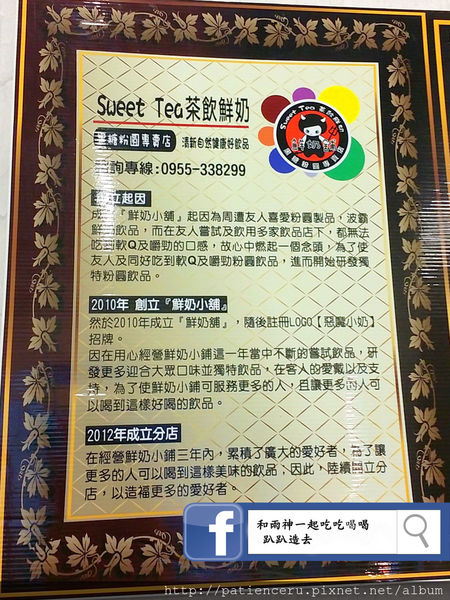 Sweet Tea茶飲鮮奶
黑糖粉圓專賣店 清新自然健康好飲品
詢專線:0955-338299
Sweet Tea 茶飲鮮奶
鮮奶舖
黑糖粉圓專賣店
立起因
成『鮮奶小舖』起因為周遭友人喜愛粉圓製品,波霸
鮮奶飲品,而在友人嘗試及飲用多家飲品店下,都無法
吃到軟Q及嚼勁的口感,故心中燃起一個念頭,為了使
友人及同好吃到軟Q及嚼勁粉圓飲品,進而開始研發獨
特粉圓飲品。
2010年 創立『鮮奶小舖』
然於2010年成立『鮮奶舖』,隨後註冊LOGO【惡魔小奶】
招牌。
因在用心經營鮮奶小鋪這一年當中不斷的嘗試飲品,研
發更多迎合大眾口味並獨特飲品,在客人的愛戴以及支
持,為了使鮮奶小鋪可服務更多的人,且讓更多的人可
以喝到這樣好喝的飲品。
2012年成立分店
在經營鮮奶小鋪三年內,累積了廣大的愛好者,為了讓
更多的人可以喝到這樣美味的飲品;因此,陸續立分
店,以造福更多的愛好者。
f
和雨神一起吃吃喝喝
趴趴造去
http://patienceru.pixnet.net/album